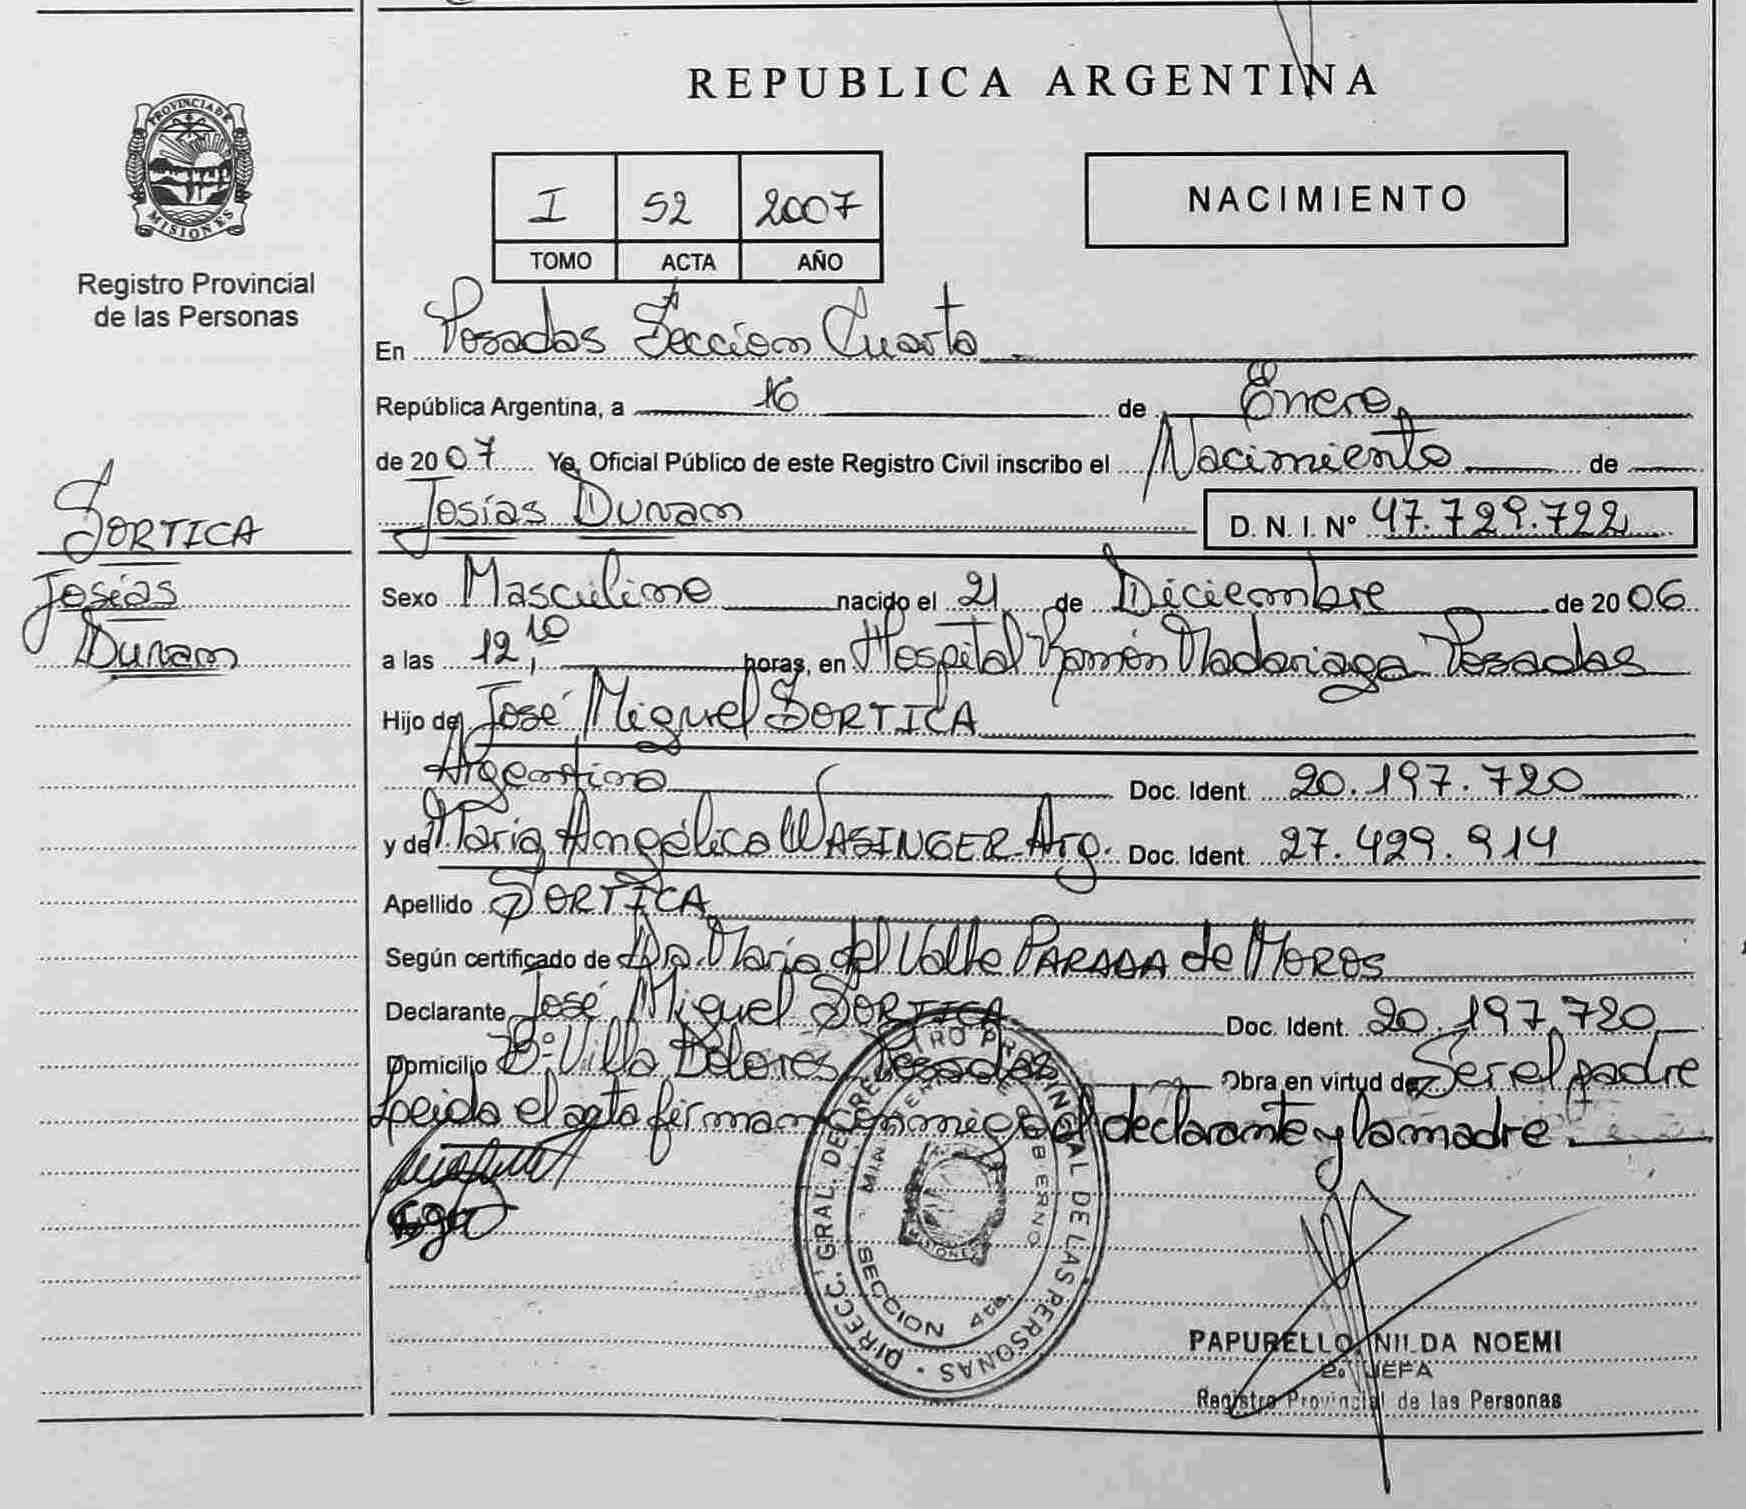 REPUBLICA ARGENTINA
PROVINCIA DE
MISIONES
Registro Provincial
de las Personas
I 52 2007
TOMO ACTA AÑO
NACIMIENTO
En Posadas Sección Cuarta
República Argentina, a 16 de Enero
de 2007 Yo, Oficial Público de este Registro Civil inscribo el Nacimiento de
Josías Dunam D. N. I. Nº 47.729.722
SORTICA
Josías
Dunam
Sexo Masculino nacido el 21 de Diciembre de 2006
a las 12,10 horas, en Hospital Ramón Madariaga Posadas
Hijo de José Miguel SORTICA
Argentino Doc. Ident. 20.197.720
y de María Angélica WASINGER Arg. Doc. Ident. 27.429.914
Apellido SORTICA
Según certificado de Dra. María del Valle PARADA de MOROS
Declarante José Miguel SORTICA Doc. Ident. 20.197.720
Domicilio Bº Villa Dolores Posadas Obra en virtud de Ser el padre
Leída el acta firman conmigo el declarante y la madre
DIRECC. GRAL. DE REGISTRO PROVINCIAL DE LAS PERSONAS
SECCION 4ta.
MISIONES
PAPURELLO, NILDA NOEMI
2º JEFA
Registro Provincial de las Personas